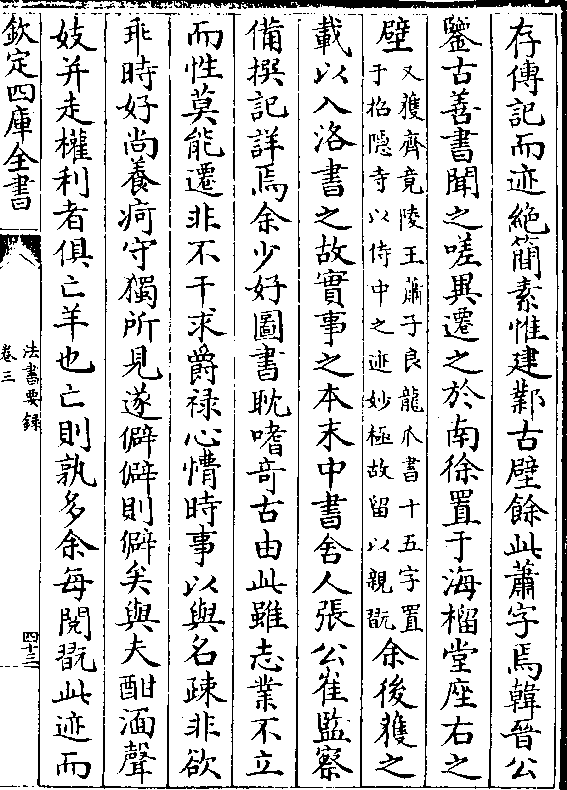 存傳記而迹絶簡素惟建鄴古壁餘此蕭字焉韓晉公
鑒古善書聞之嗟異遷之於南徐置于海榴堂座右之
壁又獲齊竟陵王蕭子良龍爪書十五字置于招隠寺以侍中之迹妙極故留以親翫余後獲之
載以入洛書之故實事之本末中書舍人張公崔監察
備撰記詳焉余少好圖書耽嗜奇古由此雖志業不立
而性莫能遷非不干求爵禄心慒時事以與名疎非欲
乖時好尚養疴守獨所見遂僻僻則僻矣與夫酣湎聲
妓并走權利者俱亡羊也亡則孰多余每閱翫此迹而
欽定四庫全書
法書要録
卷三
四十三